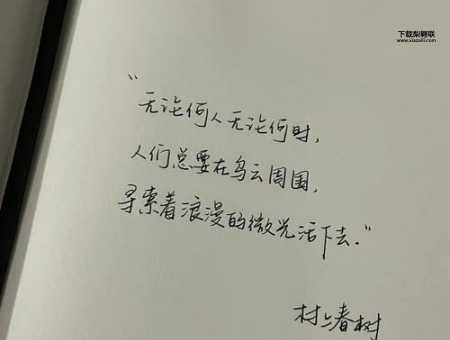 下载梨翱联
www.xiazaili.com
“无论何人无论何时，
人们总要在乌云周围，
寻索着浪漫的微光活下去.”
村上春树